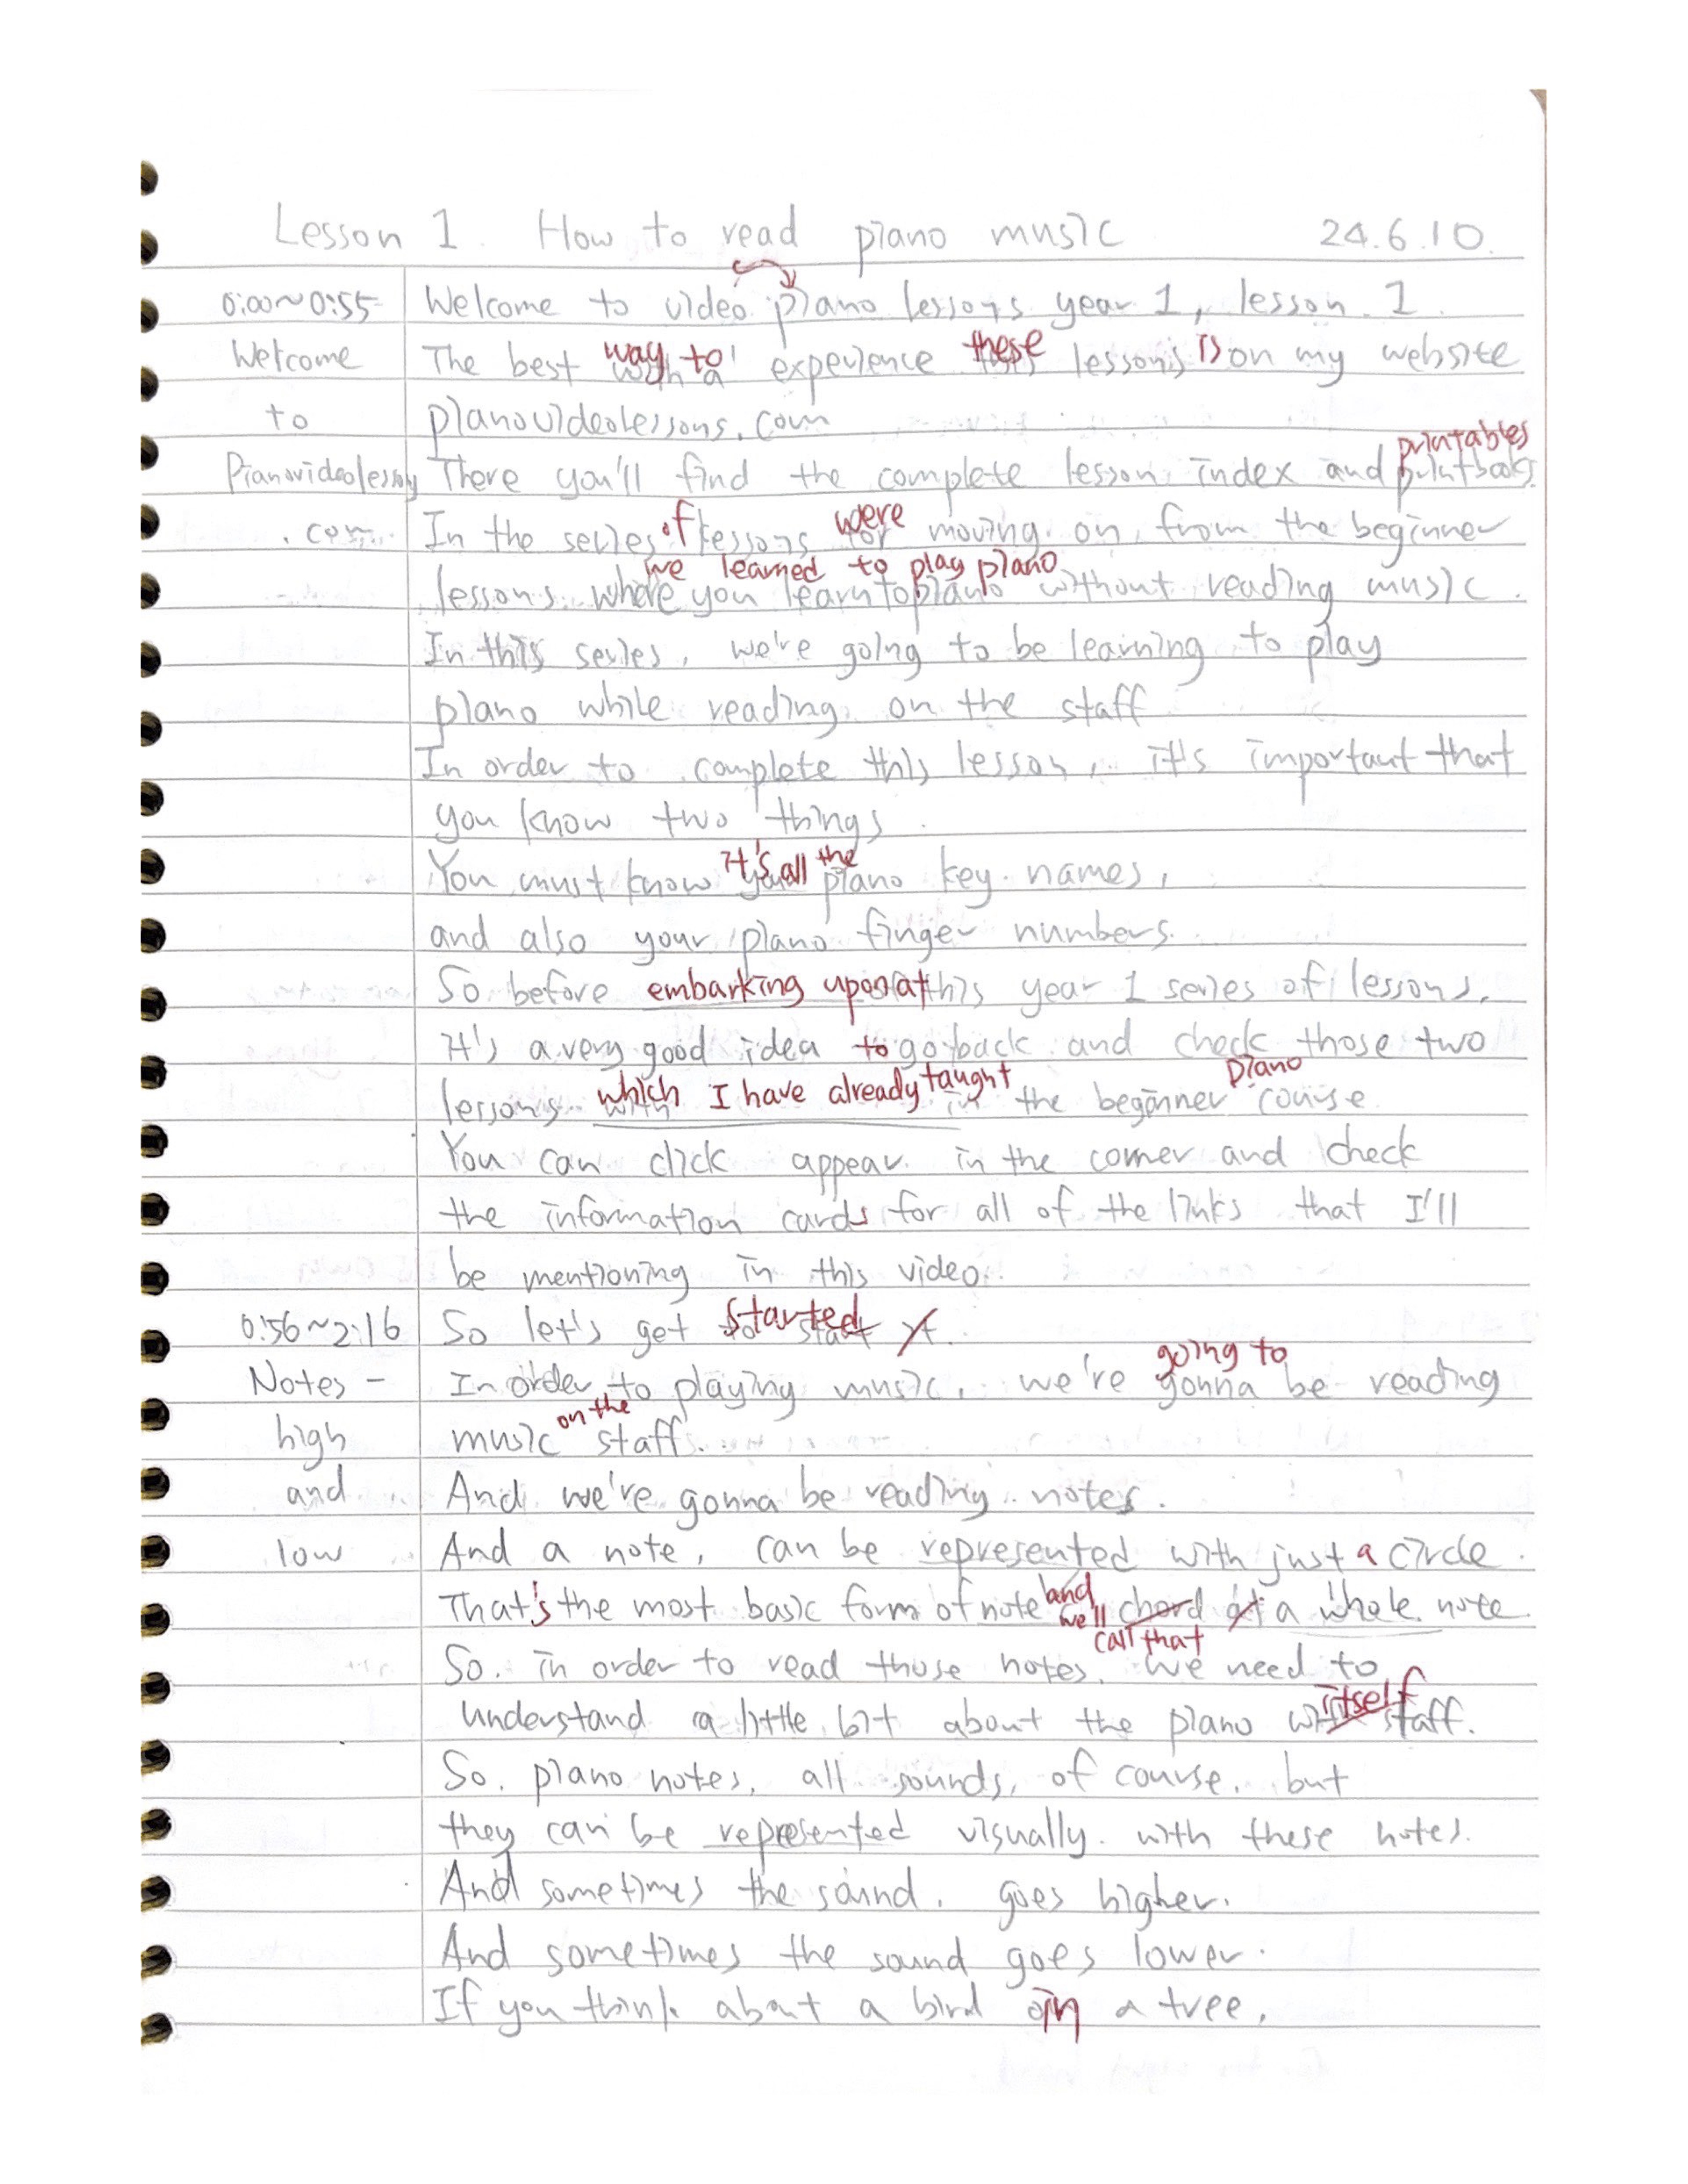 Lesson 1. How to read piano music 24.6.10.
0:00~0:55 Welcome to video piano lessons year 1, lesson 1.
Welcome The best way to experience these lessons is on my website
to pianovideolessons.com
printables
Pianovideolessons There you'll find the complete lesson index and printbooks.
.com In the series of lessons were moving on from the beginner
we learned to play piano
lessons where you learn to piano without reading music.
In this series, we're going to be learning to play
piano while reading on the staff
In order to complete this lesson, it's important that
you know two things.
You must know it's all the piano key names,
and also your piano finger numbers.
So before embarking upon this year 1 series of lessons,
It's a very good idea to go back and check those two
piano
lessons which I have already taught in the beginner course.
You can click appear in the corner and check
the information cards for all of the links that I'll
be mentioning in this video.
0:56~2:16 So let's get started
going to
Notes - In order to playing music, we're gonna be reading
on the
high music staff.
and And we're gonna be reading notes.
low And a note, can be represented with just a circle.
That's the most basic form of note and we'll chord a whole note.
call that
So, in order to read those notes, we need to
itself
understand a little bit about the piano staff.
So, piano notes, all sounds, of course, but
they can be represented visually with these notes.
And sometimes the sound, goes higher.
And sometimes the sound goes lower.
If you think about a bird in a tree,